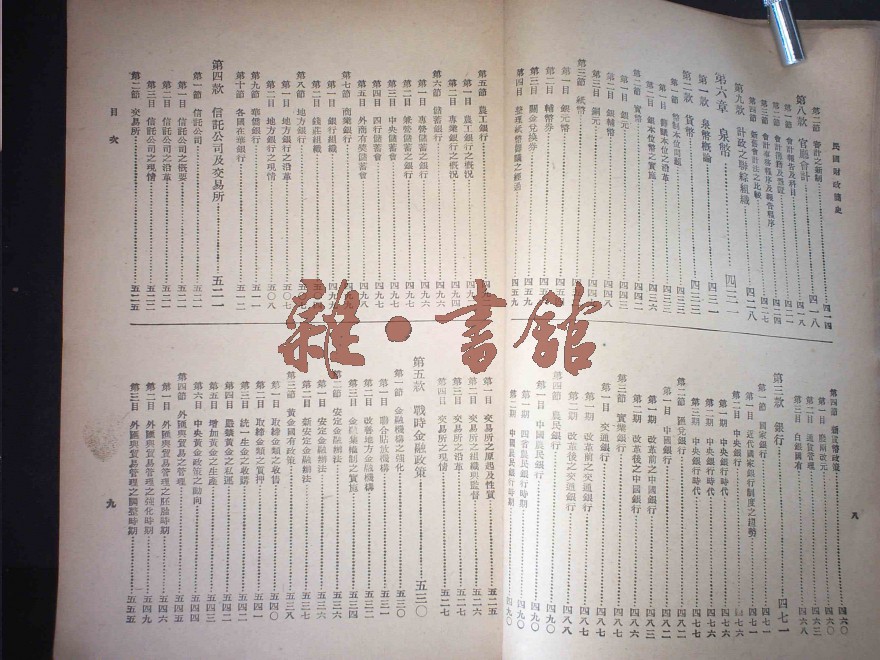 民國財政簡史
八
第二節 審計之新制 四一四
第八款 官廳會計 四一八
第一節 會計報告及科目 四一八
第二節 會計簿籍及憑證 四二四
第三節 會計事務程序及報告程序 四二七
第四節 新舊會計法之比較
第九款 計政之聯綜組織 四二八
第六章 泉幣 四三一
第一款 泉幣概論 四三一
第二款 貨幣 四三三
第一節 幣制本位問題 四三三
第一目 籌議本位之沿革
第二目 銀本位幣之實施 四三六
第二節 實幣 四四三
第一目 銀元 四四三
第二目 銀輔幣
第三目 銅元
第三節 紙幣
第一目 銀元幣
第二目 輔幣券
第三目 關金兌換券
第四目 整理紙幣籌議之經過 四五九
第四節 新貨幣政策 四六〇
第一目 廢兩改元 四六〇
第二目 通貨管理 四六三
第三目 白銀國有 四六八
第三款 銀行 四七一
第一節 國家銀行 四七一
第一目 近代國家銀行制度之趨勢 四七一
第二目 中央銀行
第一期 中央銀行時代
第二期 中央銀行時代 四七六
第三期 中央銀行時代 四七七
第二節 匯兌銀行 四八二
第一目 中國銀行 四八二
第一期 改革前之中國銀行 四八二
第二期 改革後之中國銀行 四八三
第三節 實業銀行 四八六
第一目 交通銀行 四八六
第一期 改革前之交通銀行 四八七
第二期 改革後之交通銀行 四八八
第四節 農民銀行 四八八
第一目 中國農民銀行 四九〇
第一期 四省農民銀行時期 四九〇
第二期 中國農民銀行時期 四九〇
第五節 農工銀行
第一目 農工銀行之概況
第二目 專業銀行之概況 四九四
第六節 儲蓄銀行 四九六
第一目 專營儲蓄之銀行 四九六
第二目 兼營儲蓄之銀行 四九七
第三目 中央儲蓄會 四九七
第四目 四行儲蓄會 四九七
第五目 外商有獎儲蓄會 四九八
第七節 商業銀行
第一目 銀行組織
第二目 錢莊組織
第八節 地方銀行
第一目 地方銀行之沿革 五〇七
第二目 地方銀行之現情 五〇八
第九節 華僑銀行 五一一
第十節 各國在華銀行 五一二
第四款 信託公司及交易所 五二一
第一節 信託公司 五二一
第一目 信託公司之概要 五二一
第二目 信託公司之沿革 五二一
第三目 信託公司之現情 五二二
第二節 交易所 五二五
第一目 交易所之原起及性質 五二五
第二目 交易所之組織與監督 五二六
第三目 交易所之沿革 五二七
第四目 交易所之現情
第五款 戰時金融政策 五三〇
第一節 金融機構之強化 五三〇
第一目 聯合貼放機構 五三一
第二目 改善地方金融機構 五三二
第三目 金融集權制之實施 五三四
第二節 安定金融辦法 五三六
第一目 安定金融辦法 五三六
第二目 新安定金融辦法 五三七
第三節 黃金國有政策 五三八
第一目 取締金類之收售 五四〇
第二目 取締金類之質押 五四一
第三目 統一生金之收購 五四二
第四目 嚴禁黃金之私運 五四二
第五目 增加黃金之生產 五四三
第六目 中央黃金政策之動向 五四四
第四節 外匯與貿易之管理 五四五
第一目 外匯與貿易管理之胚胎時期 五四六
第二目 外匯與貿易管理之強化時期 五四九
第三目 外匯與貿易管理之調整時期 五五五
目次
九
雜·書館